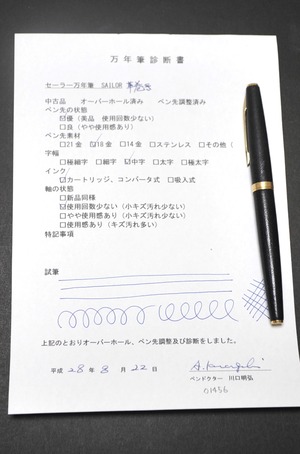 万年筆診断書
セーラー万年筆 SAILOR
中古品 オーバーホール済み ペン先調整済み
ペン先の状態
☑優(美品 使用回数少ない)
□良(やや使用感あり)
ペン先素材
□21金 ☑18金 □14金 □ステンレス □その他(
字幅
□極細字 □細字 ☑中字 □太字 □極太字
インク
☑カートリッジ、コンバータ式 □吸入式
軸の状態
□新品同様
☑使用回数少ない(小キズ汚れ少ない)
□やや使用感あり(小キズ汚れ少ない)
□使用感あり(キズ汚れ多い)
特記事項
試筆
上記のとおりオーバーホール、ペン先調整及び診断をしました。
平成 28 年 8 月 22 日
ペンドクター 川口明弘
01456